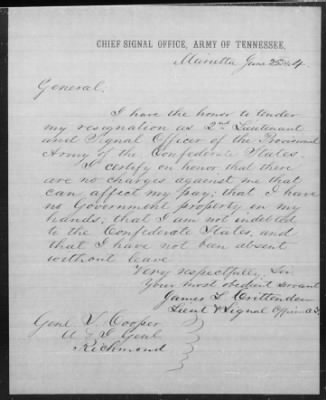 CHIEF SIGNAL OFFICE, ARMY OF TENNESSEE,
Marietta June 25th 64.
General,
I have the honor to tender
my resignation as 2nd Lieutenant
and Signal Officer of the Provisional
Army of the Confederate States.
I certify on honor that there
are no charges against me that
can affect my pay; that I have
no Government property in my
hands; that I am not indebted
to the Confederate States, and
that I have not been absent
without leave
Very respectfully, Sir
Your most obedient servant
James L Crittenden
Lieut & Signal Officer
Genl S. Cooper
A & I Genl
Richmond